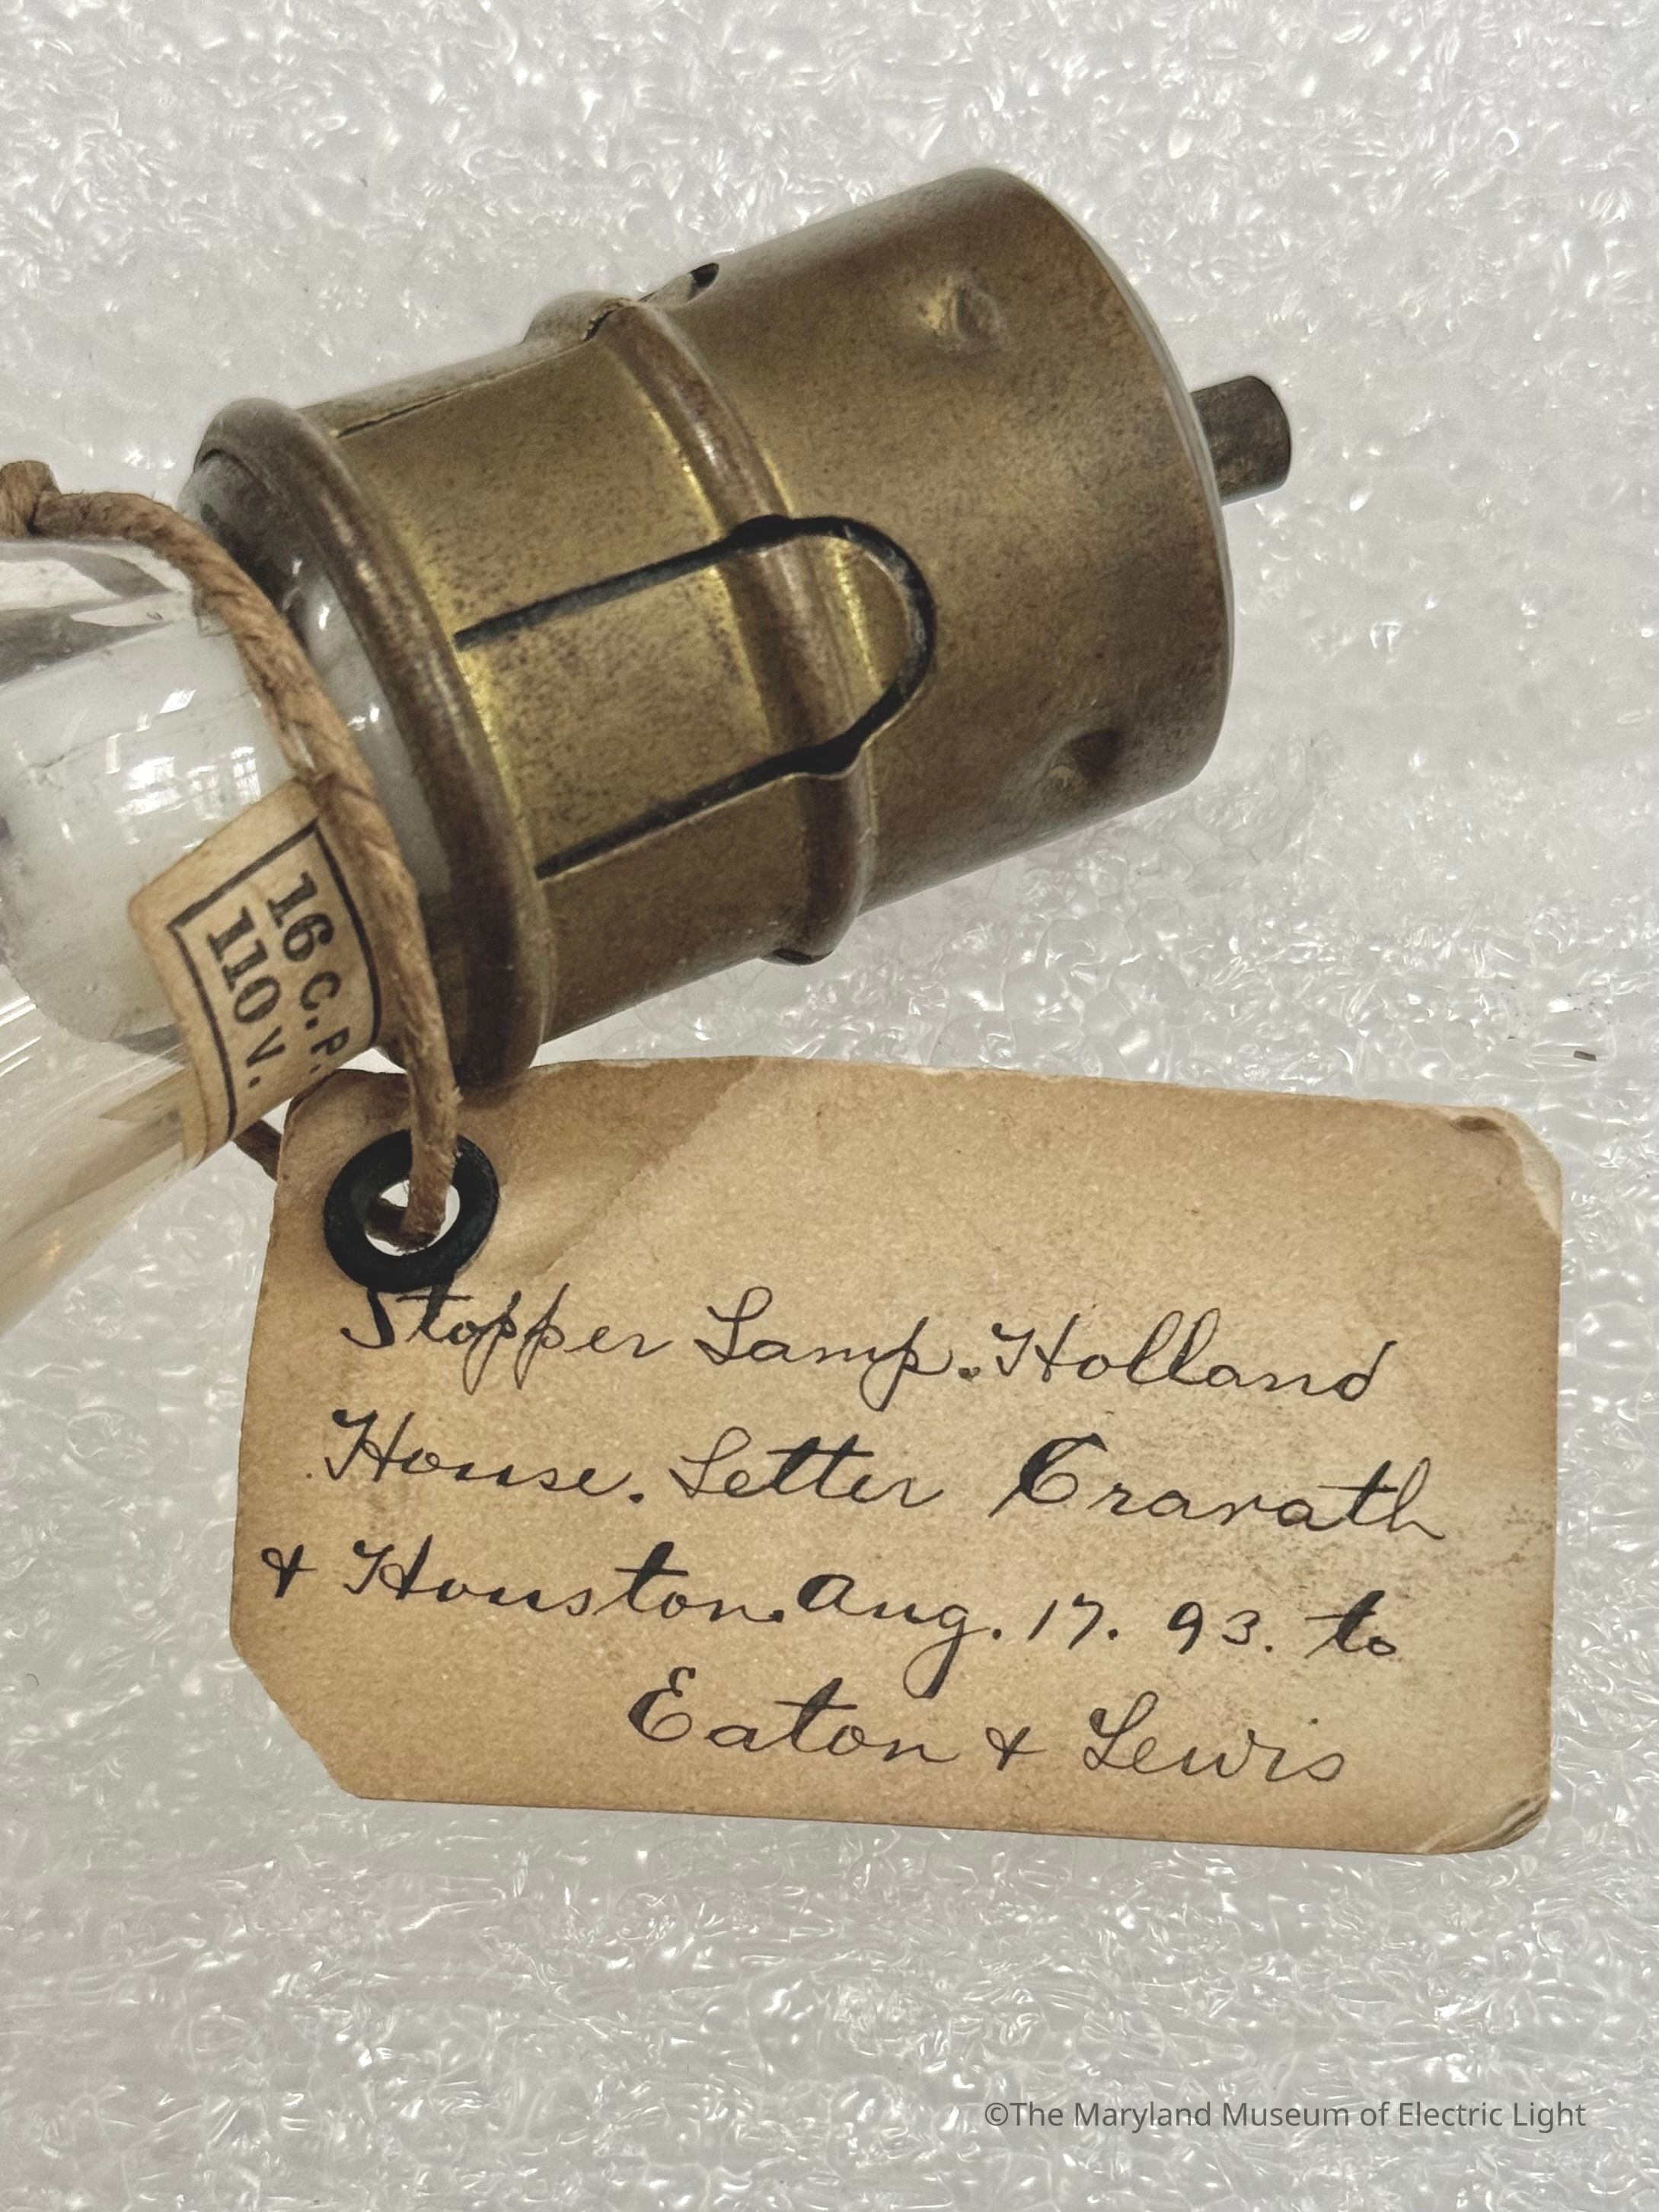 16 C. P.
110 V.
Stopper Lamp. Holland
House. Letter Cravath
& Houston. Aug. 17. 93. to
Eaton & Lewis
©The Maryland Museum of Electric Light